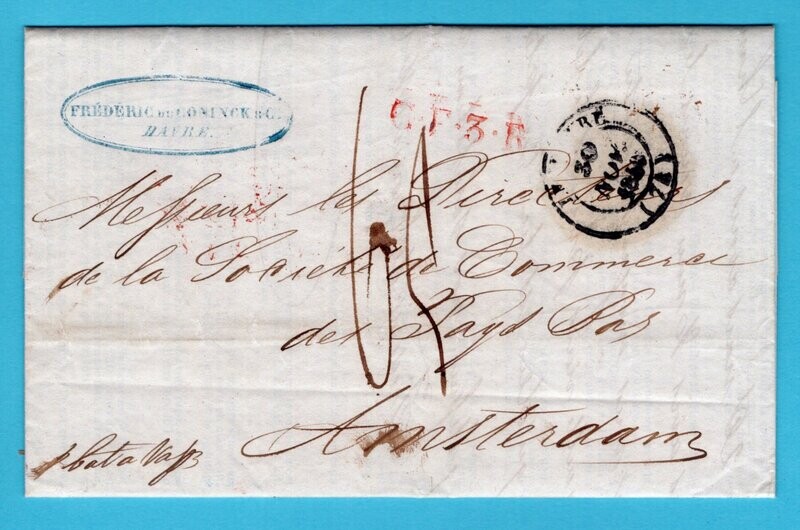 FRÉDÉRIC DE CONINCK & C.
HAVRE.
C.F.3.R
LE HAVRE
30
NOV
(74)
Messieurs les Directeurs
de la Société de Commerce
des Pays Bas
Amsterdam
p bat a vap